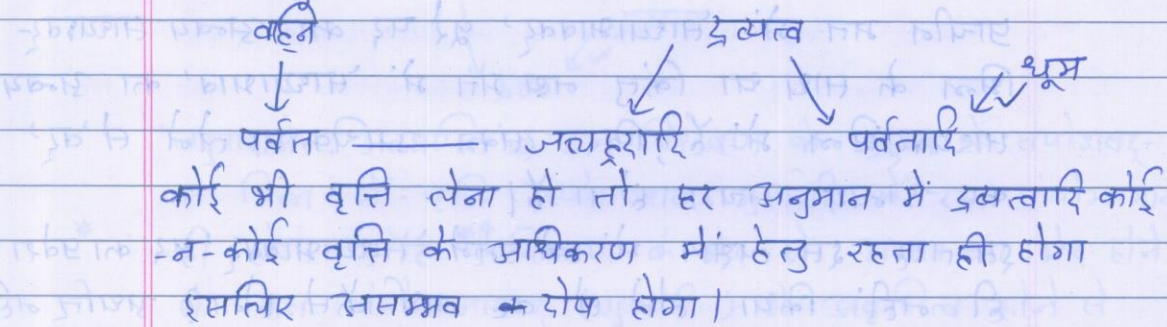 वह्नि द्रव्यत्व
धूम
पर्वत जलहृदादि पर्वतादि
कोई भी वृत्ति लेना हो तो हर अनुमान में द्रव्यत्वादि कोई
न-कोई वृत्ति के अधिकरण में हेतु रहता ही होगा
इसलिए असम्भव दोष होगा।